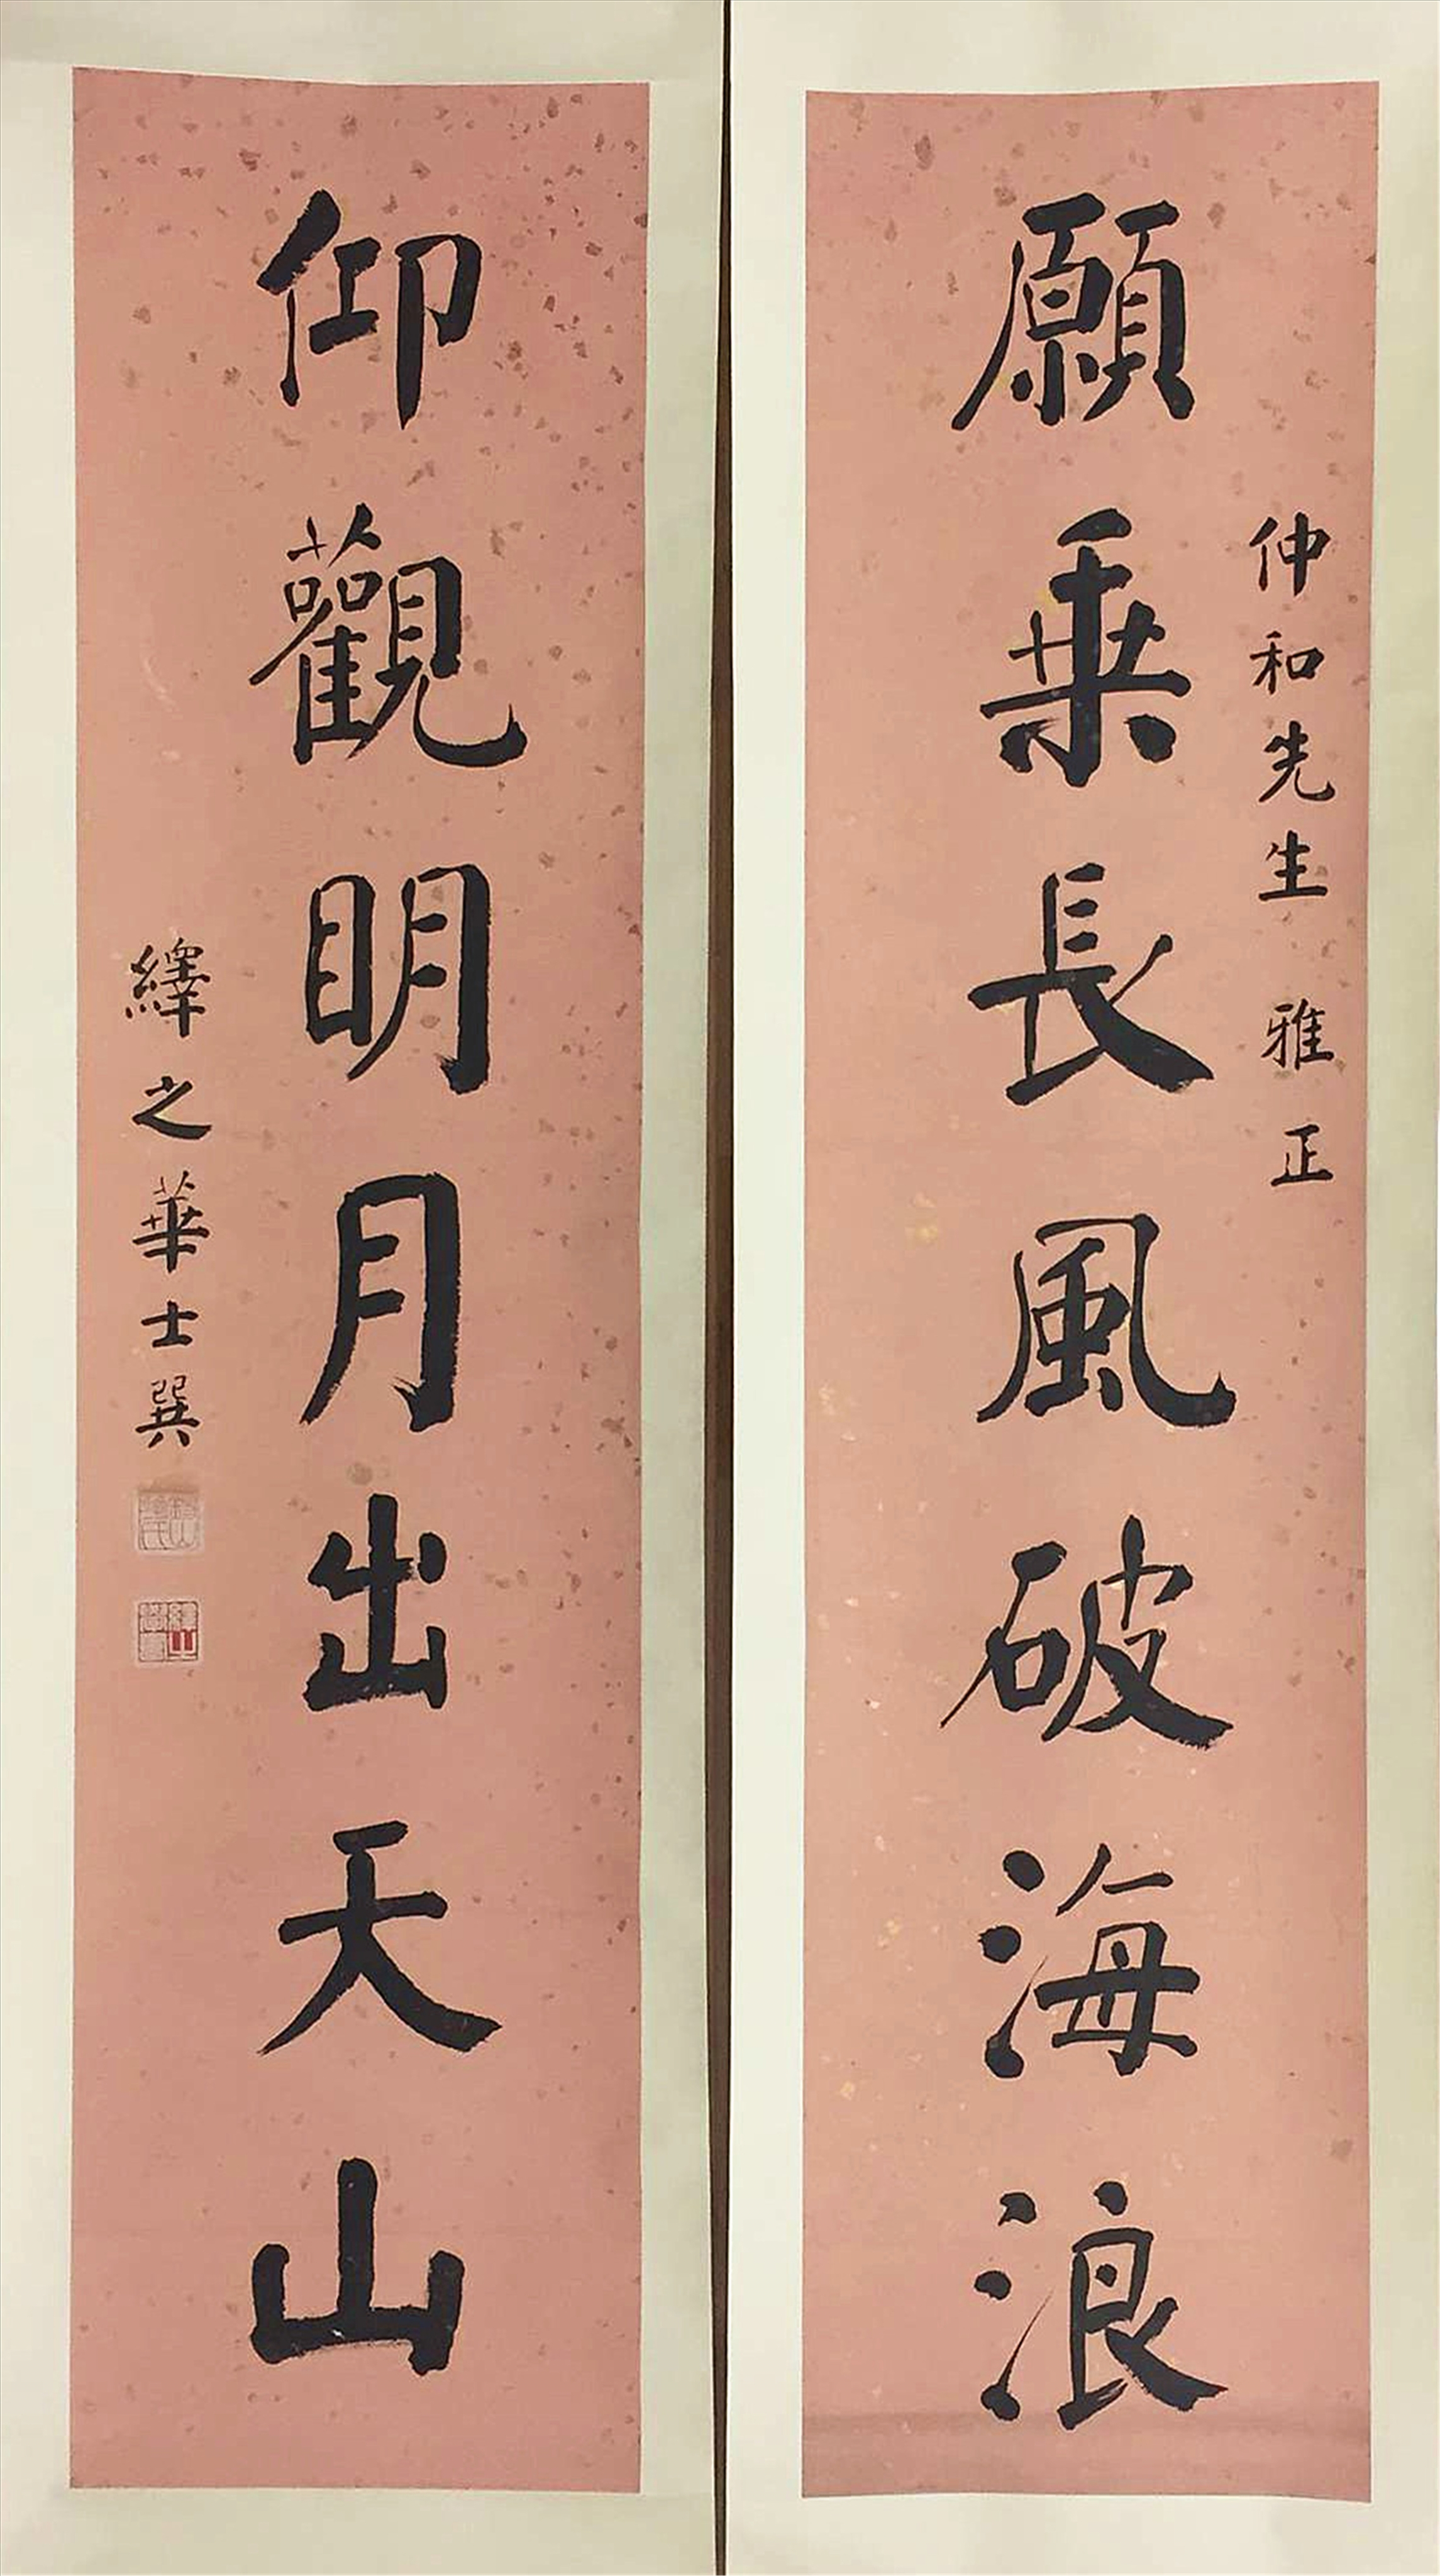 願乗長風破海浪
仲和先生 雅正
仰觀明月出天山
繹之華士巽